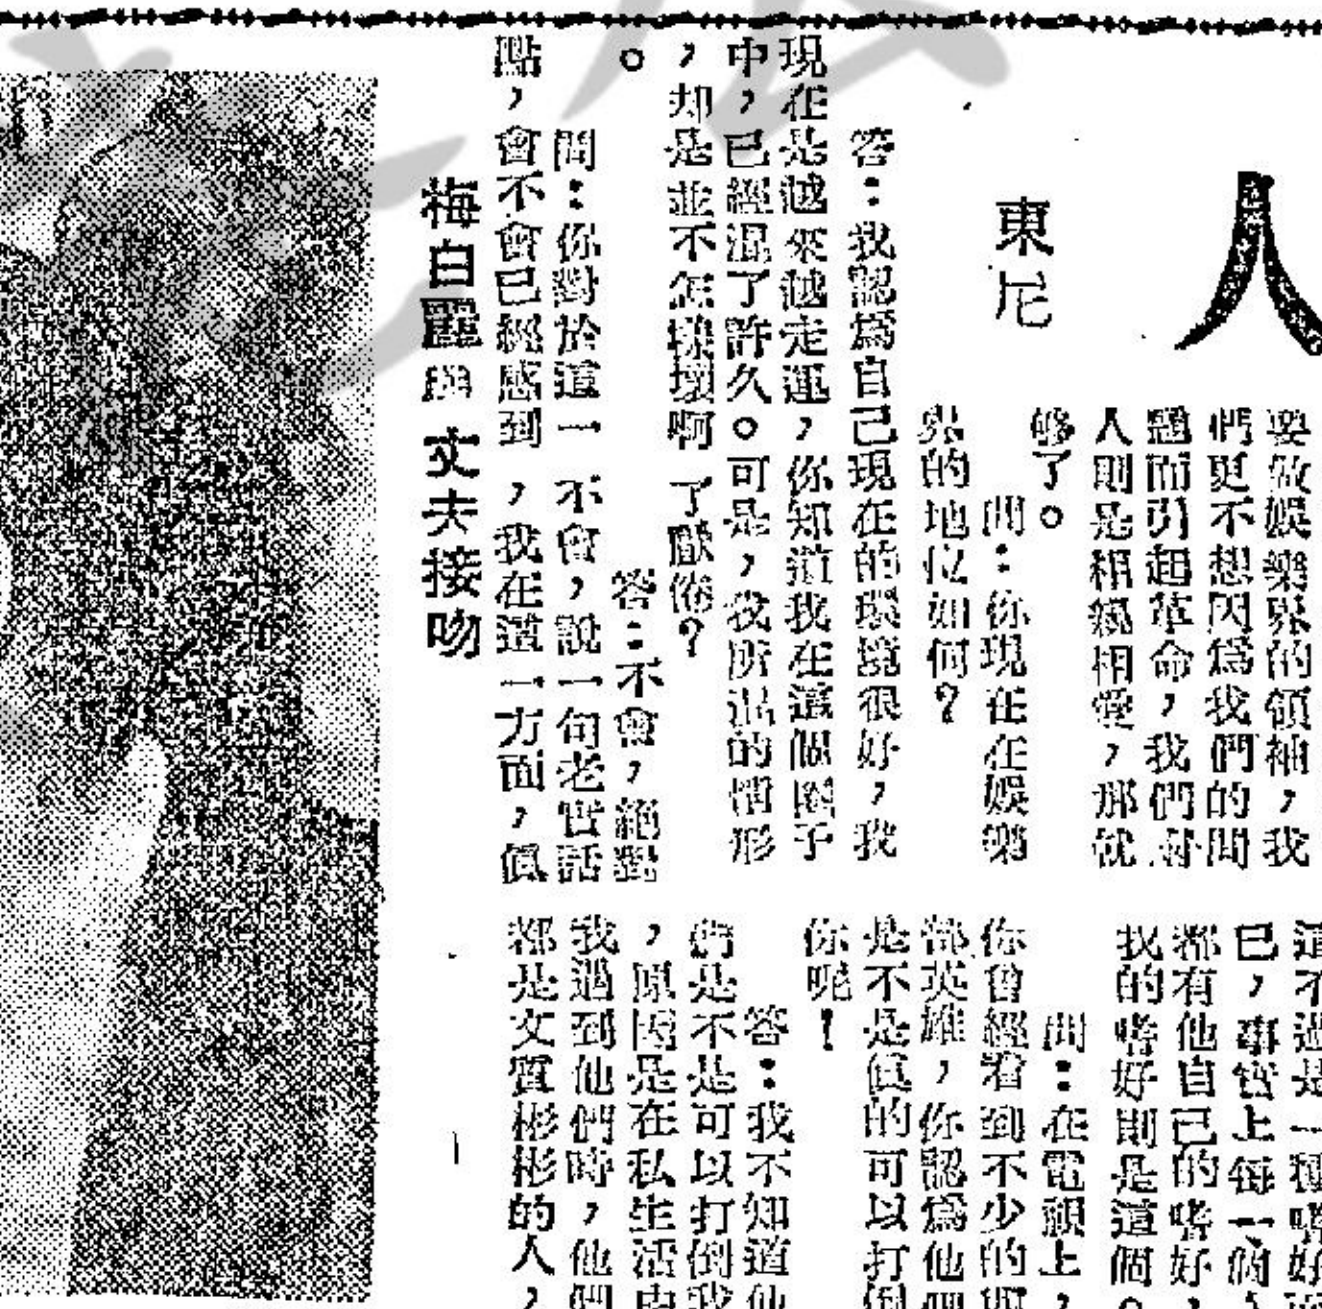 人
東尼
要做娛樂界的領袖，我
們更不想因爲我們的問
題而引起革命，我們對
人則是相親相愛，那就
够了。
問：你現在在娛樂
界的地位如何？
答：我認爲自己現在的環境很好，我
現在是越來越走運，你知道我在這個圈子
中，已經混了許久。可是，我所混的情形
，却是並不怎樣壞啊
。
問：你對於這一
點，會不會已經感到
了厭俗？
答：不會，絕對
不會，說一句老實話
，我在這一方面，眞
梅白麗與丈夫接吻
這不過是一種嗜好
已，事實上每一個
都有他自己的嗜好，
我的嗜好則是這個。
問：在電視上，
你曾經看到不少的
部英雄，你認爲他們
是不是眞的可以打倒
你呢！
答：我不知道他
們是不是可以打倒我
，原因是在私生活中
我遇到他們時，他們
都是文質彬彬的人，